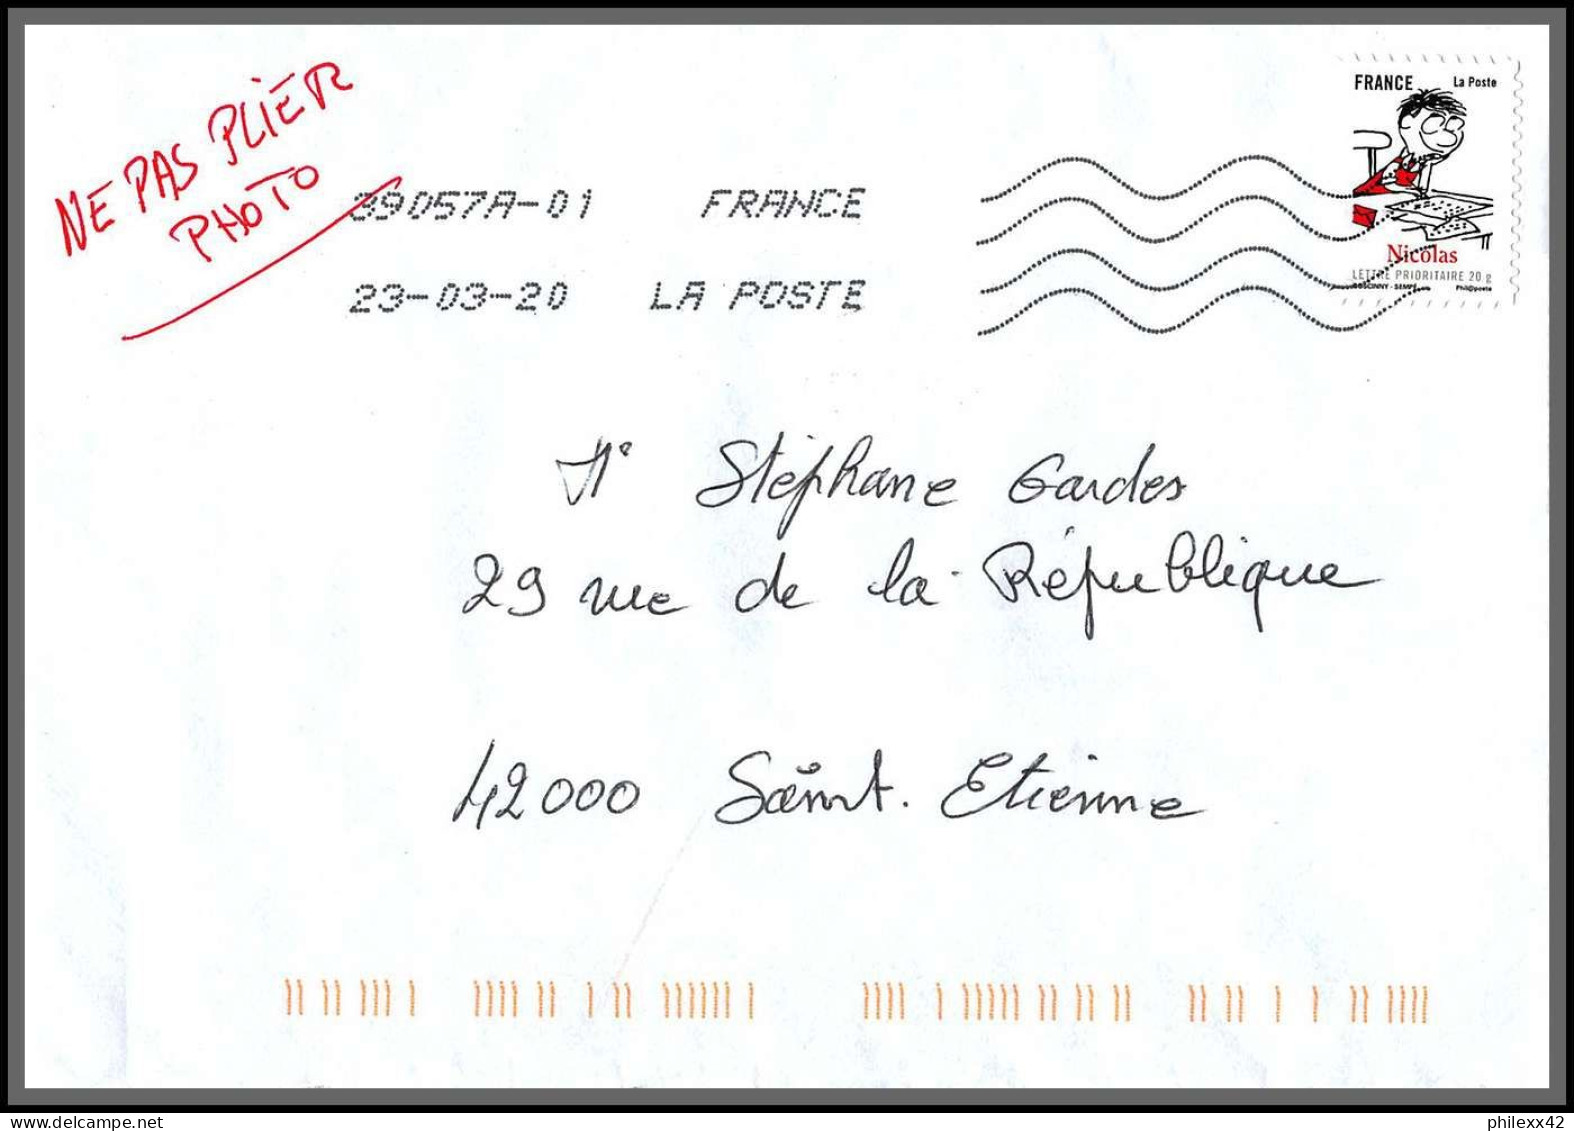 NE PAS PLIER
PHOTO
39057A-01 FRANCE
23-03-20 LA POSTE
FRANCE La Poste
Nicolas
LETTRE PRIORITAIRE 20 g
GOSCINNY - SEMPÉ Phil@poste
Mr Stéphane Gardes
29 rue de la République
42000 Saint. Etienne
philexx42